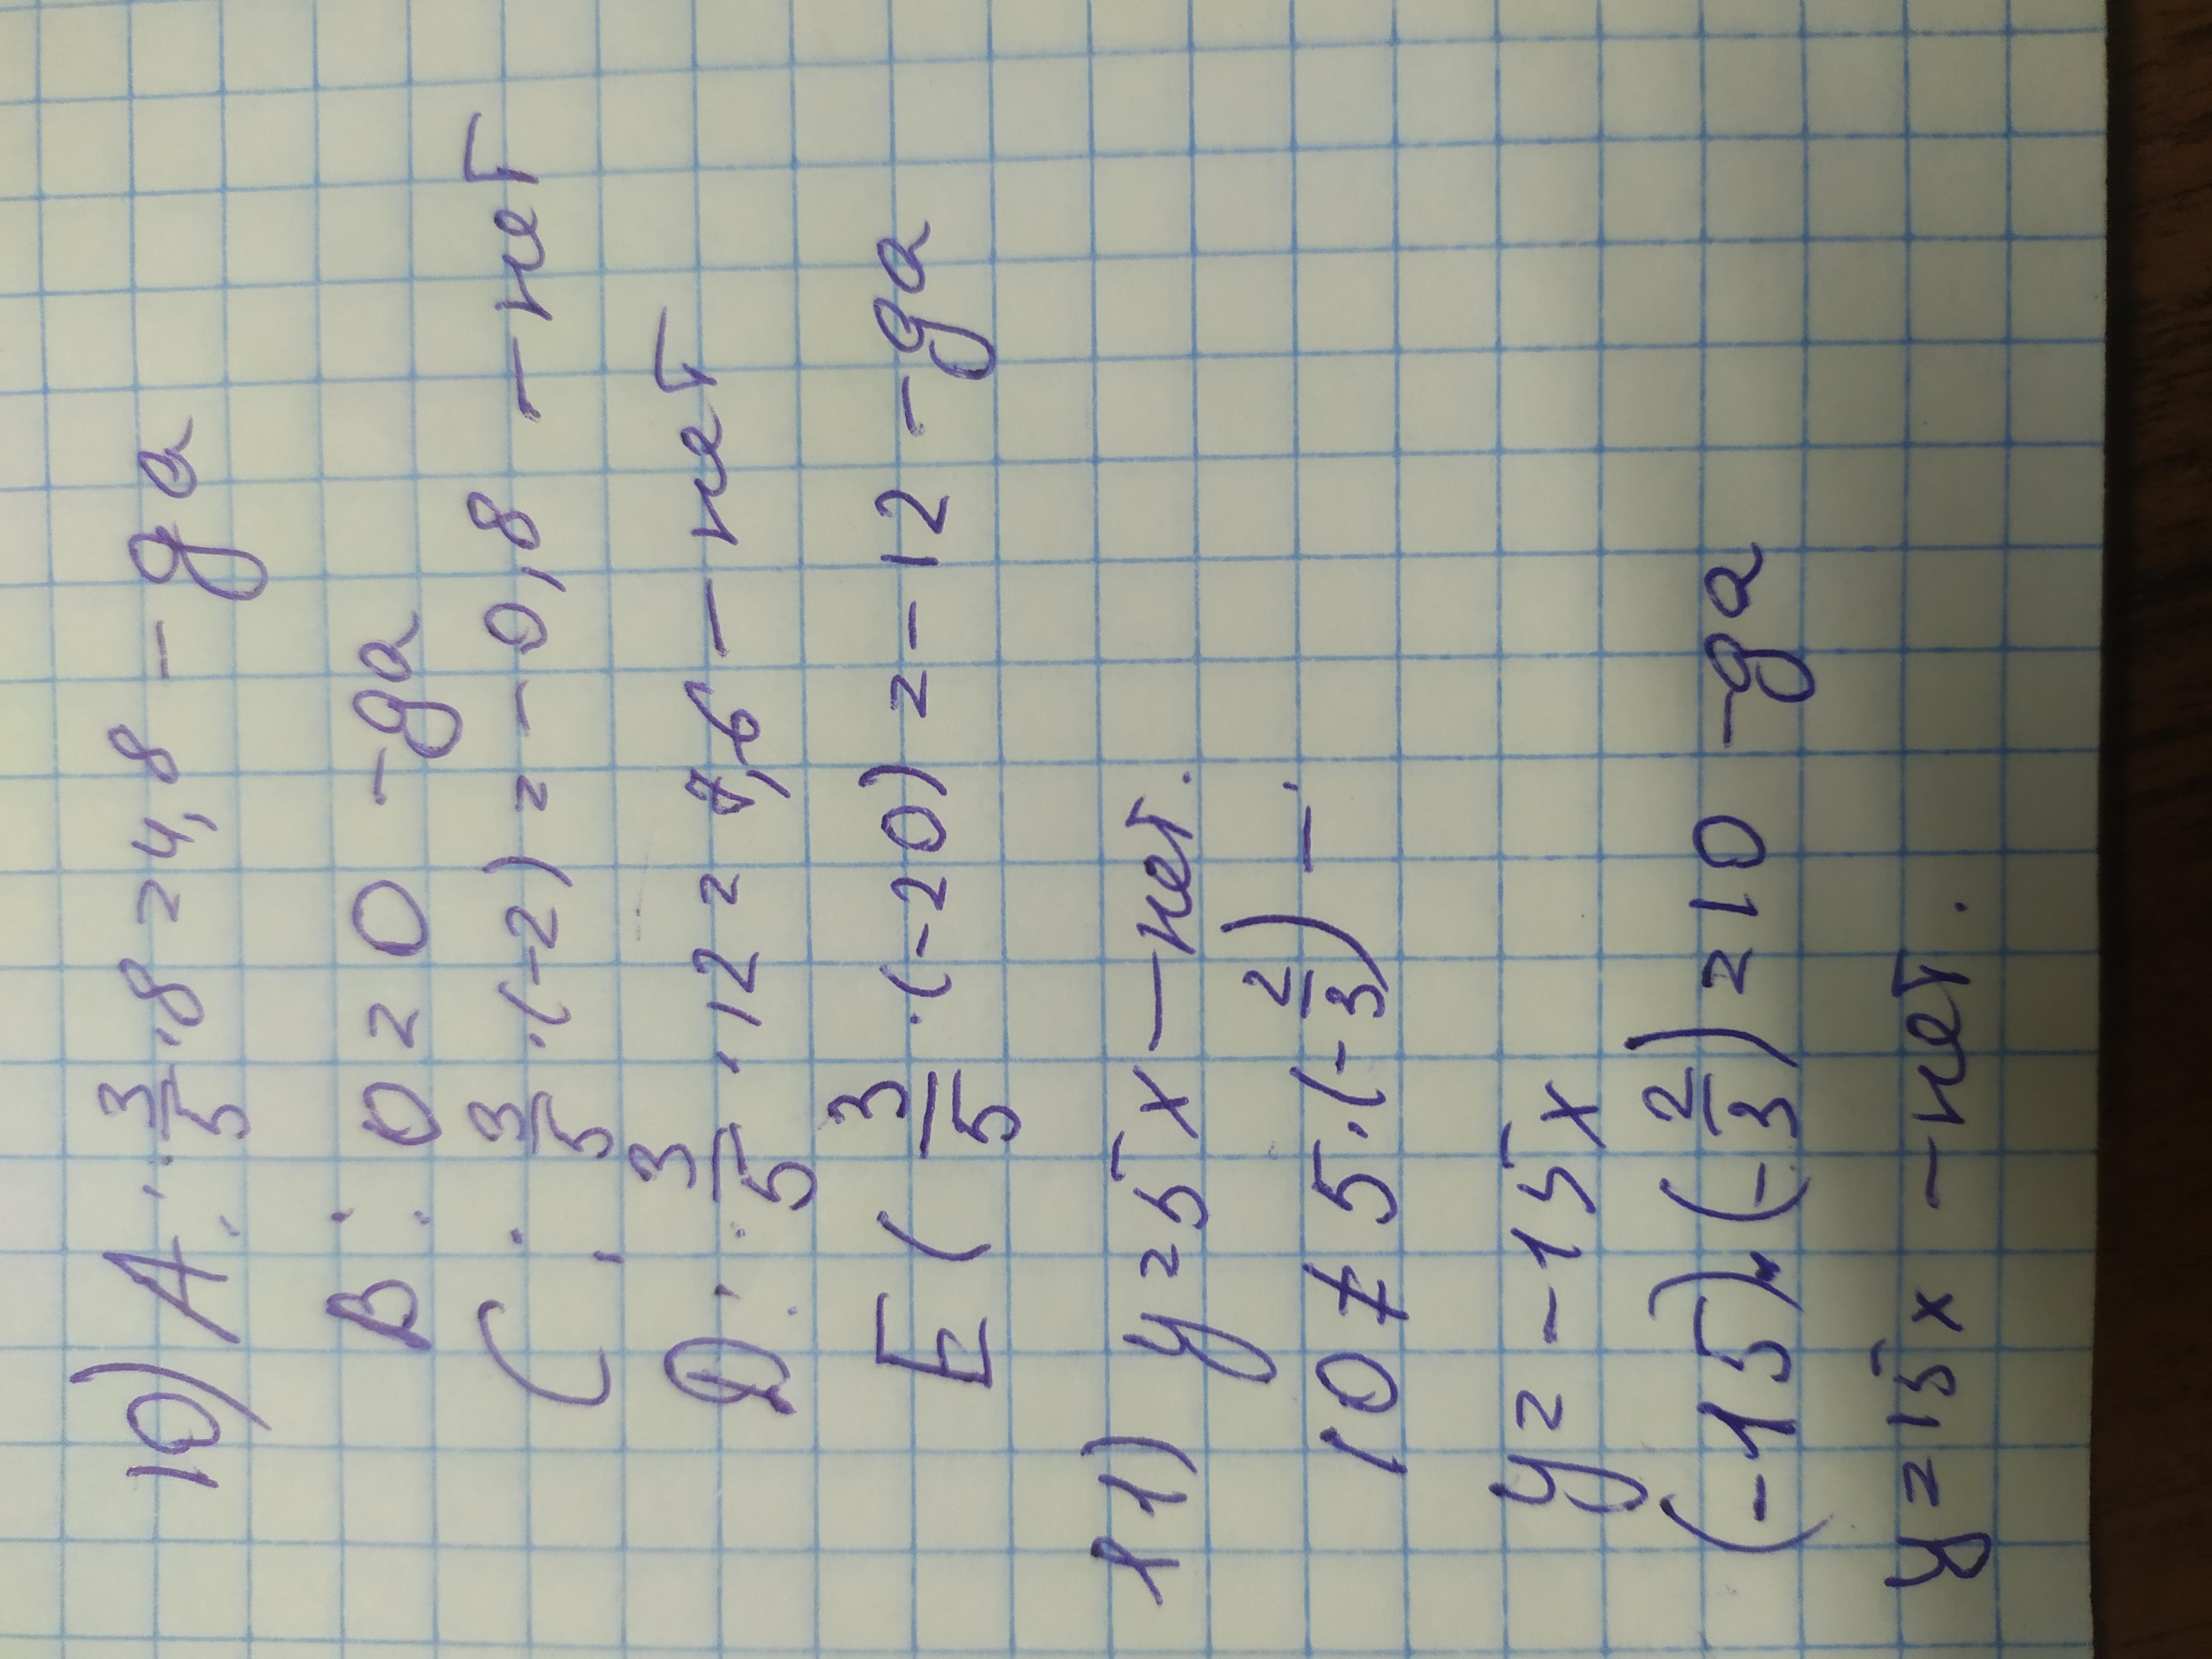 10) A: 3/5 · 8 = 4,8 - да
B: 0 = 0 - да
C: 3/5 · (-2) = -0,8 - нет
D: 3/5 · 12 = 7,6 - нет
E ( 3/5 · (-20) = -12 - да
11) y = 5x - нет.
10 ≠ 5 · (-2/3) - .
y = -15x
(-15) · (-2/3) = 10 - да
y = 15x - нет.